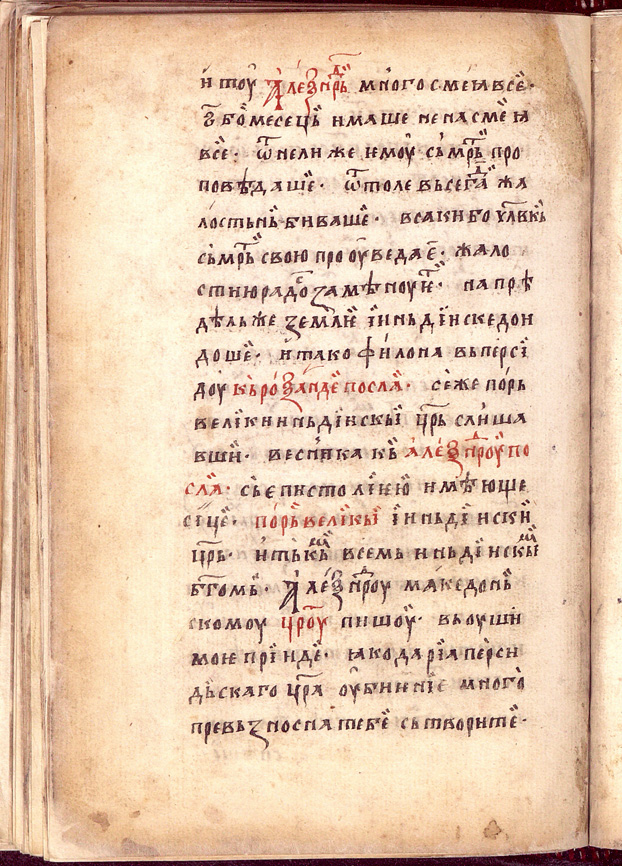 и тоу Алеѯнⷣрь много смеꙗ все ·
з҃ бо месець имаше не насмеꙗ
все · ѿнели же емоу сьмрть про
поведаше · ѿтоле вьсегда жа
лостьнь биваше · всаки бо чл҃вкь
сьмрть свою проуведае · жало
стию радоⷭ замѣноуѥⷮ · на прѣ
дѣльже землѥ їиньдїнскедон
доше · и тако филона вь перси
доу кь розанде посла · сеже порь
велики иньдїнскы црь слиша
вши · веснika кь алеѯнⷣроу по
сла · сь епистолїею имѣюще
сице · порь великы їиньдїнски
црь · и тькьмⷨ всемь иньдїнскыⷨ
бг҃омь · Алеѯнⷣроу македонь
скомоу цроу пишоу · вь оуши
мое прїиде · ꙗко дарїа перси
дьскаго цра оубиенїе много
превьзнос на тебе сьтворите ·